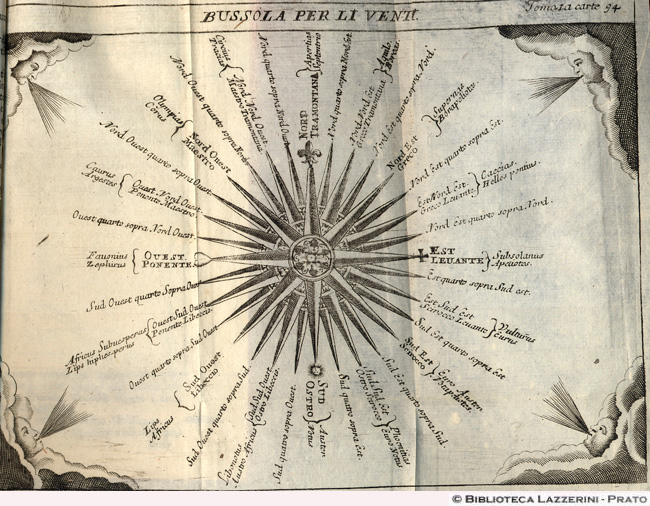 BUSSOLA PER LI VENTI.
Tomo 1.a carte 94
NORD
TRAMONTANA
Aparthias
Septentrio
Nord quarto sopra Nord Est
Nord Nord Est
Greco Tramontana
Aquilo
Boreas
Nord Est quarto sopra Nord.
Nord Est
Greco
Supernas
Borapeliotes
Nord Est quarto sopra Est.
Est Nord Est.
Greco Leuante
Caecias
Helles pontius.
Nord Est quarto sopra Nord.
EST
LEUANTE
Subsolanus
Apeliotes.
Est quarto sopra Sud est.
Est Sud Est
Scirocco Leuante
Vulturus
Eurus
Sud Est quarto sopra Est
Sud Est
Scirocco
Euro Auster
Sud Est quarto sopra Sud.
Sud Sud Est
Ostro Scirocco
Phoenitias
Euro Notus
Sud quatro sopra Est.
SUD
OSTRO
Auster
Notus
Sud quatro sopra Ouest.
Sud Sud Ouest.
Ostro Libeccio.
Libonotus
Austro Africus
Sud Ouest quatro sopra Sud.
Sud Ouest
Libeccio
Lips
Africus
Ouest quarto sopra Sud
Ouest Sud Ouest
Ponente Libeccio.
Africus Subuesperus
Sud Ouest quarto Sopra Ouest
OUEST.
PONENTE
Fauonius
Zephirus
Ouest quarto sopra Nord Ouest
Quart. Nord Ouest
Ponente Maestro
Caurus
Argestes
Nord Ouest quarto sopra Ouest
Nord Ouest
Maestro
Olimpias
Corus
Nord Ouest quarto sopra Nord
Nord Nord Ouest
Maestro Tramontana
Circius
Thracias
Nord quarto sopra Nord Ouest
© BIBLIOTECA LAZZERINI - PRATO